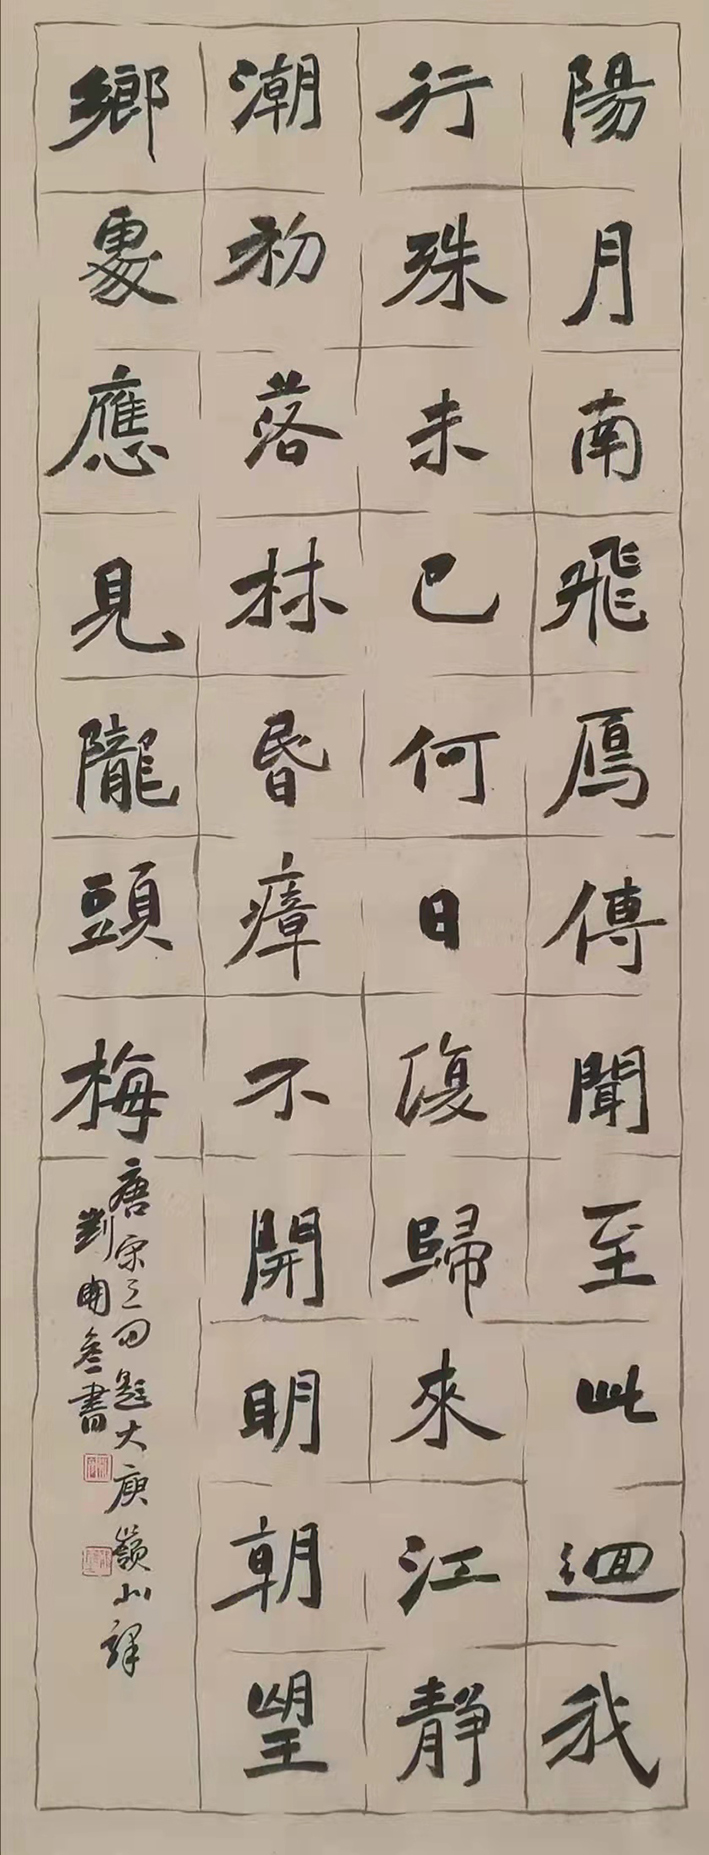 陽月南飛鴈傳聞至此迴我
行殊未已何日復歸來江静
潮初落林昏瘴不開明朝望
鄉處應見隴頭梅
唐宋之問題大庾嶺北驛
劉開書